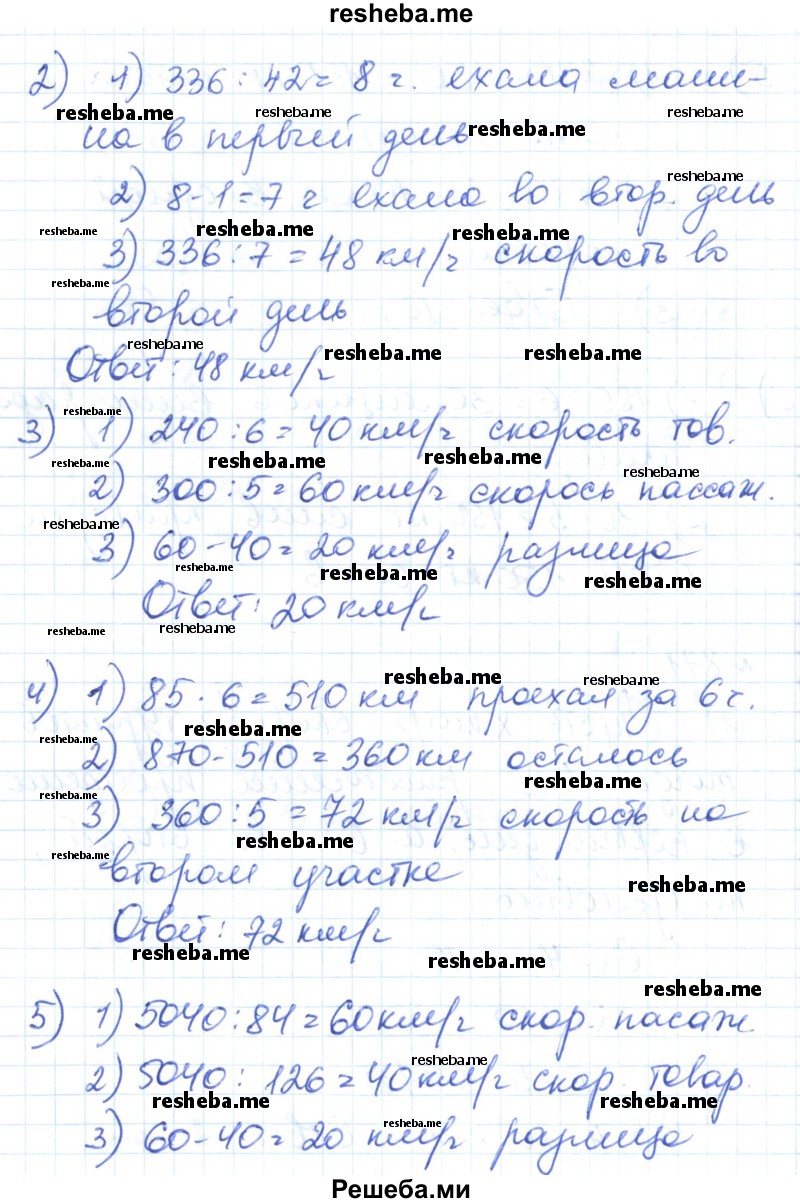 resheba.me
2) 1) 336 : 42 = 8 ч. ехала маши-
resheba.me resheba.me resheba.me resheba.me
на в первый день
resheba.me
2) 8 - 1 = 7 ч ехала во втор. день
resheba.me resheba.me resheba.me
3) 336 : 7 = 48 км/ч скорость во
resheba.me
второй день
resheba.me
Ответ: 48 км/ч
resheba.me resheba.me
resheba.me
3) 1) 240 : 6 = 40 км/ч скорость тов.
resheba.me resheba.me resheba.me
resheba.me
2) 300 : 5 = 60 км/ч скорось пассаж.
resheba.me
3) 60 - 40 = 20 км/ч разница
resheba.me resheba.me resheba.me
Ответ: 20 км/ч
resheba.me resheba.me
resheba.me resheba.me
4) 1) 85 · 6 = 510 км проехал за 6 ч.
resheba.me
resheba.me
2) 870 - 510 = 360 км осталось
resheba.me
resheba.me
3) 360 : 5 = 72 км/ч скорость на
resheba.me
resheba.me
втором участке
resheba.me
Ответ: 72 км/ч
resheba.me resheba.me
resheba.me
5) 1) 5040 : 84 = 60 км/ч скор. пасаж.
resheba.me
2) 5040 : 126 = 40 км/ч скор. товар.
resheba.me resheba.me
resheba.me
3) 60 - 40 = 20 км/ч разница
Решеба.ми